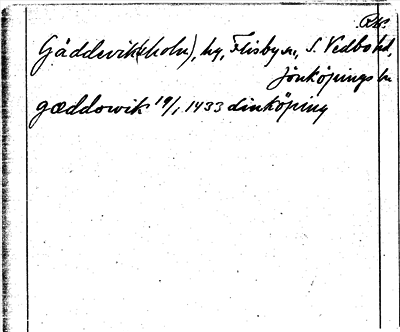 Gäddevik(holm), hg, Flisby sn, S. Vedbo hd,
Jönköpings ln
gæddowik 19/1 1433 Linköping